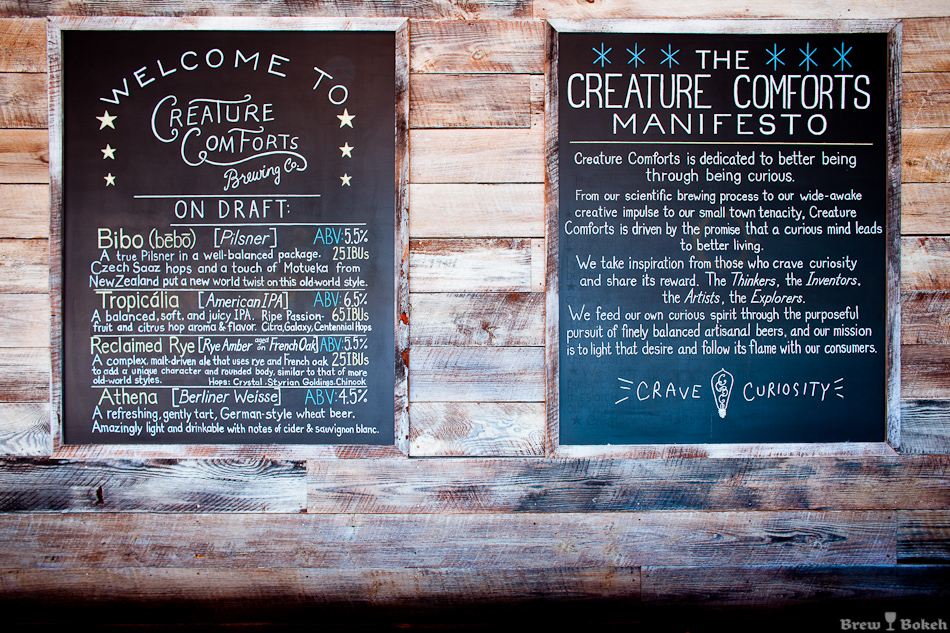 WELCOME TO
CREATURE
COMFORTS
Brewing Co.
ON DRAFT:
Bibo (bēbō) [Pilsner] ABV: 5.5%
A true Pilsner in a well-balanced package. 25 IBUs
Czech Saaz hops and a touch of Motueka from
New Zealand put a new world twist on this old-world style.
Tropicália [American IPA] ABV: 6.5%
A balanced, soft, and juicy IPA. Ripe Passion- 65 IBUs
fruit and citrus hop aroma & flavor. Citra, Galaxy, Centennial Hops
Reclaimed Rye [Rye Amber aged on French Oak] ABV: 5.5%
A complex, malt-driven ale that uses rye and French oak 25 IBUs
to add a unique character and rounded body, similar to that of more
old-world styles. Hops: Crystal, Styrian Goldings, Chinook
Athena [Berliner Weisse] ABV: 4.5%
A refreshing, gently tart, German-style wheat beer.
Amazingly light and drinkable with notes of cider & sauvignon blanc.
THE
CREATURE COMFORTS
MANIFESTO
Creature Comforts is dedicated to better being
through being curious.
From our scientific brewing process to our wide-awake
creative impulse to our small town tenacity, Creature
Comforts is driven by the promise that a curious mind leads
to better living.
We take inspiration from those who crave curiosity
and share its reward. The Thinkers, the Inventors,
the Artists, the Explorers.
We feed our own curious spirit through the purposeful
pursuit of finely balanced artisanal beers, and our mission
is to light that desire and follow its flame with our consumers.
CRAVE CURIOSITY
Brew Bokeh